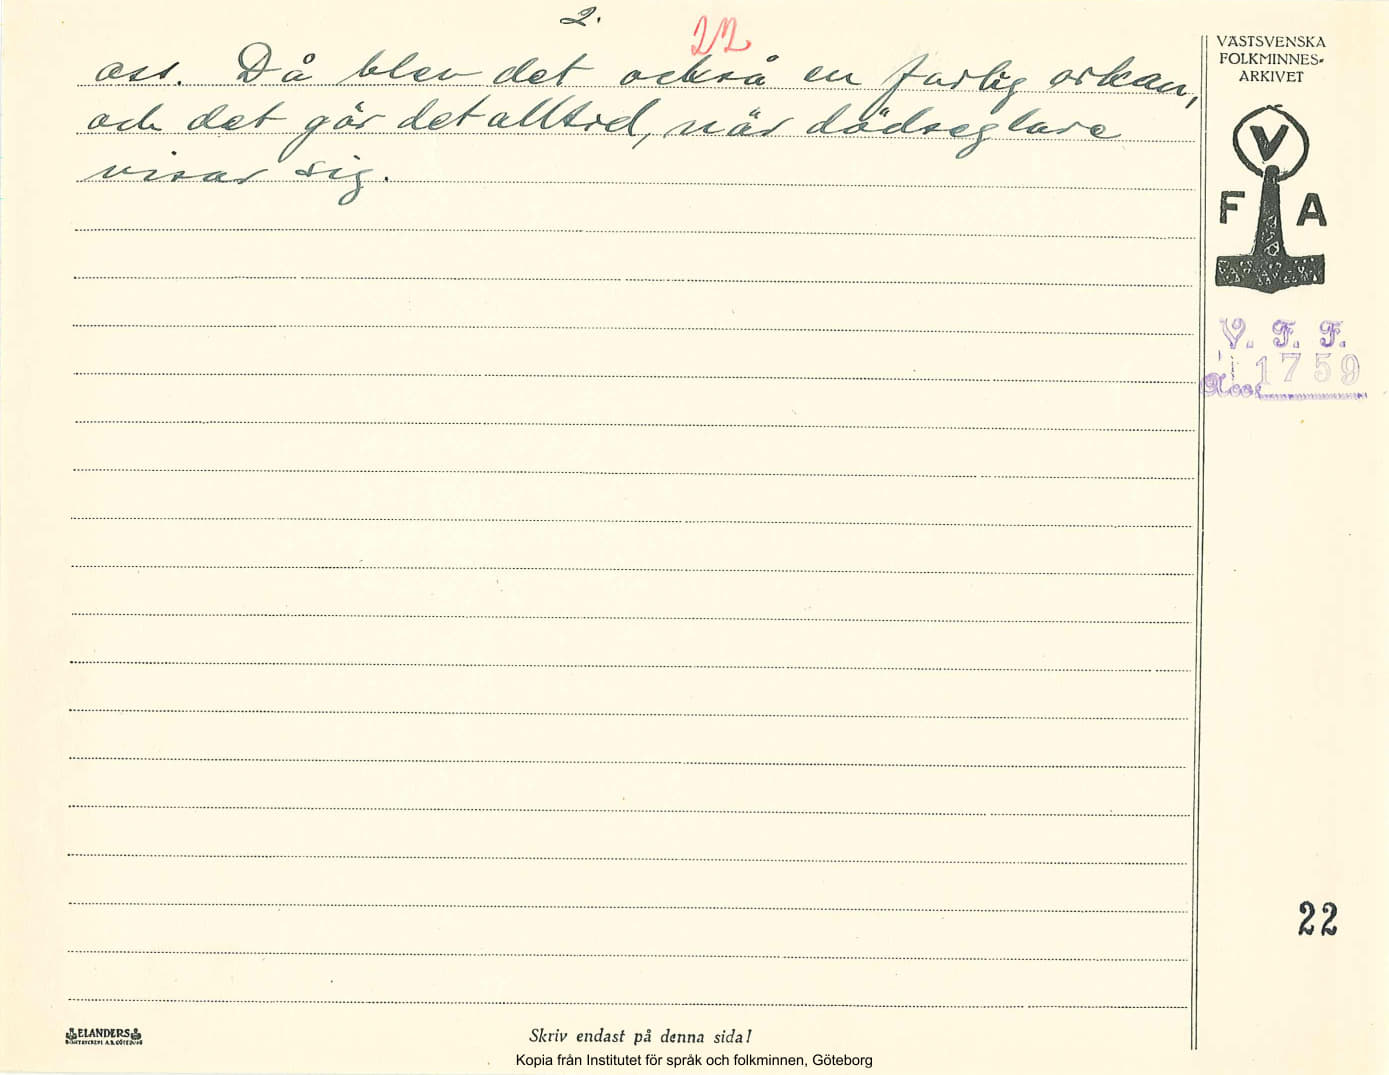 2.
22
oss. Då blev det också en farlig orkan,
och det gör det alltid, när dödseglare
visar sig.
VÄSTSVENSKA
FOLKMINNES-
ARKIVET
V
F A
V. F. F.
1759
22
ELANDERS
Skriv endast på denna sida!
Kopia från Institutet för språk och folkminnen, Göteborg